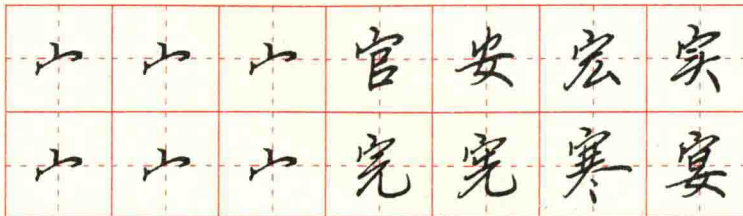 宀宀宀官安宏实
宀宀宀完宪寒宴